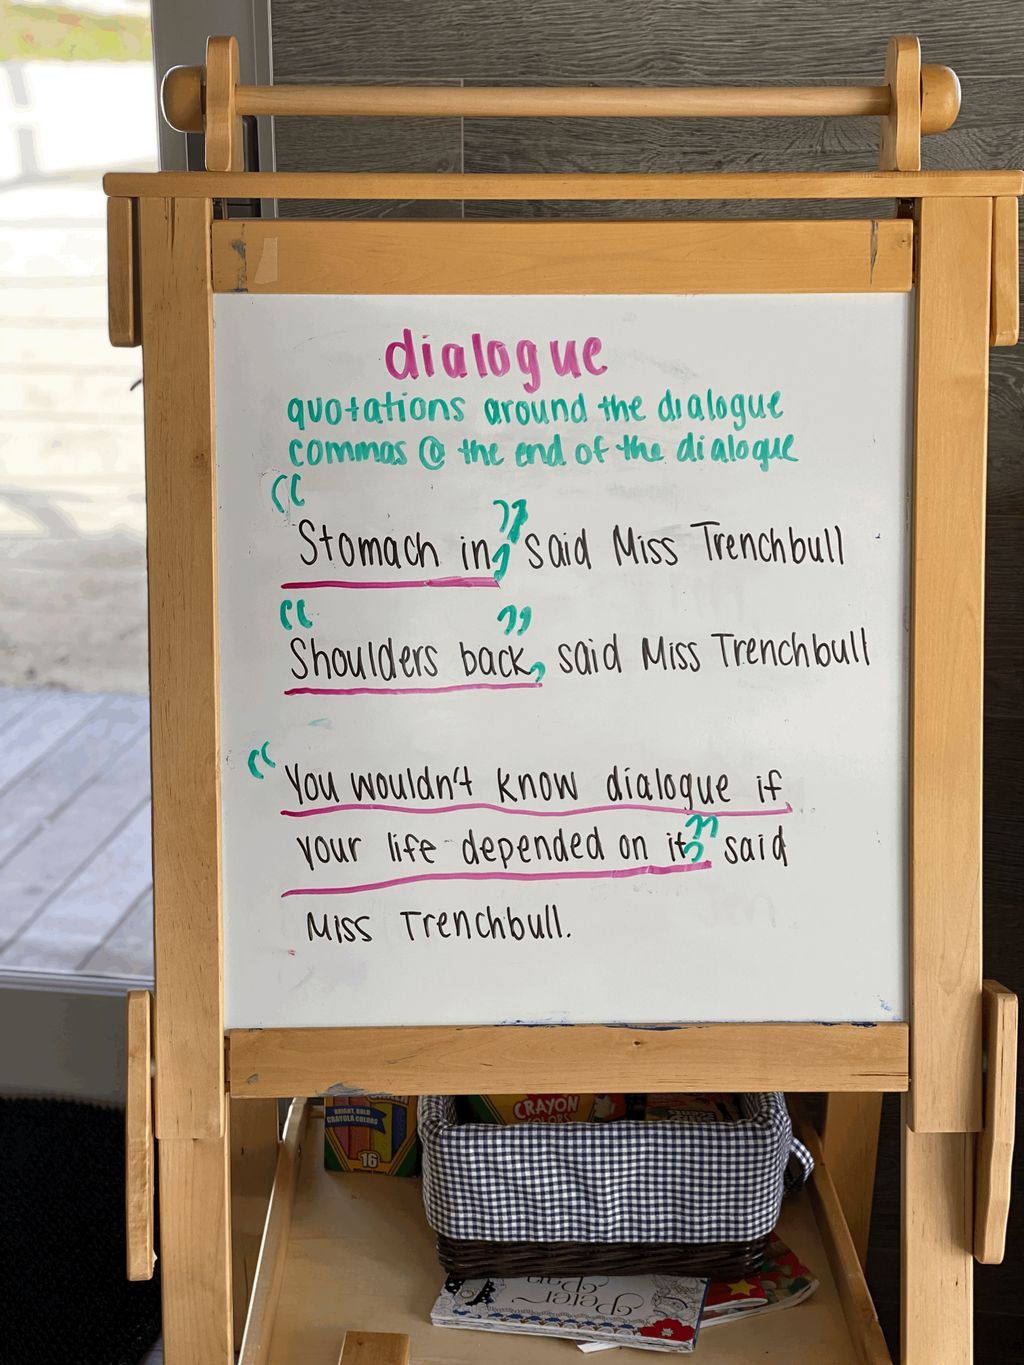 dialogue
quotations around the dialogue
commas @ the end of the dialogue
“Stomach in,” said Miss Trenchbull
“Shoulders back,” said Miss Trenchbull
“You wouldn't know dialogue if
your life depended on it,” said
Miss Trenchbull.
BRIGHT, BOLD
CRAYOLA COLORS
16
CRAYON
COLORS
Peter
Pan